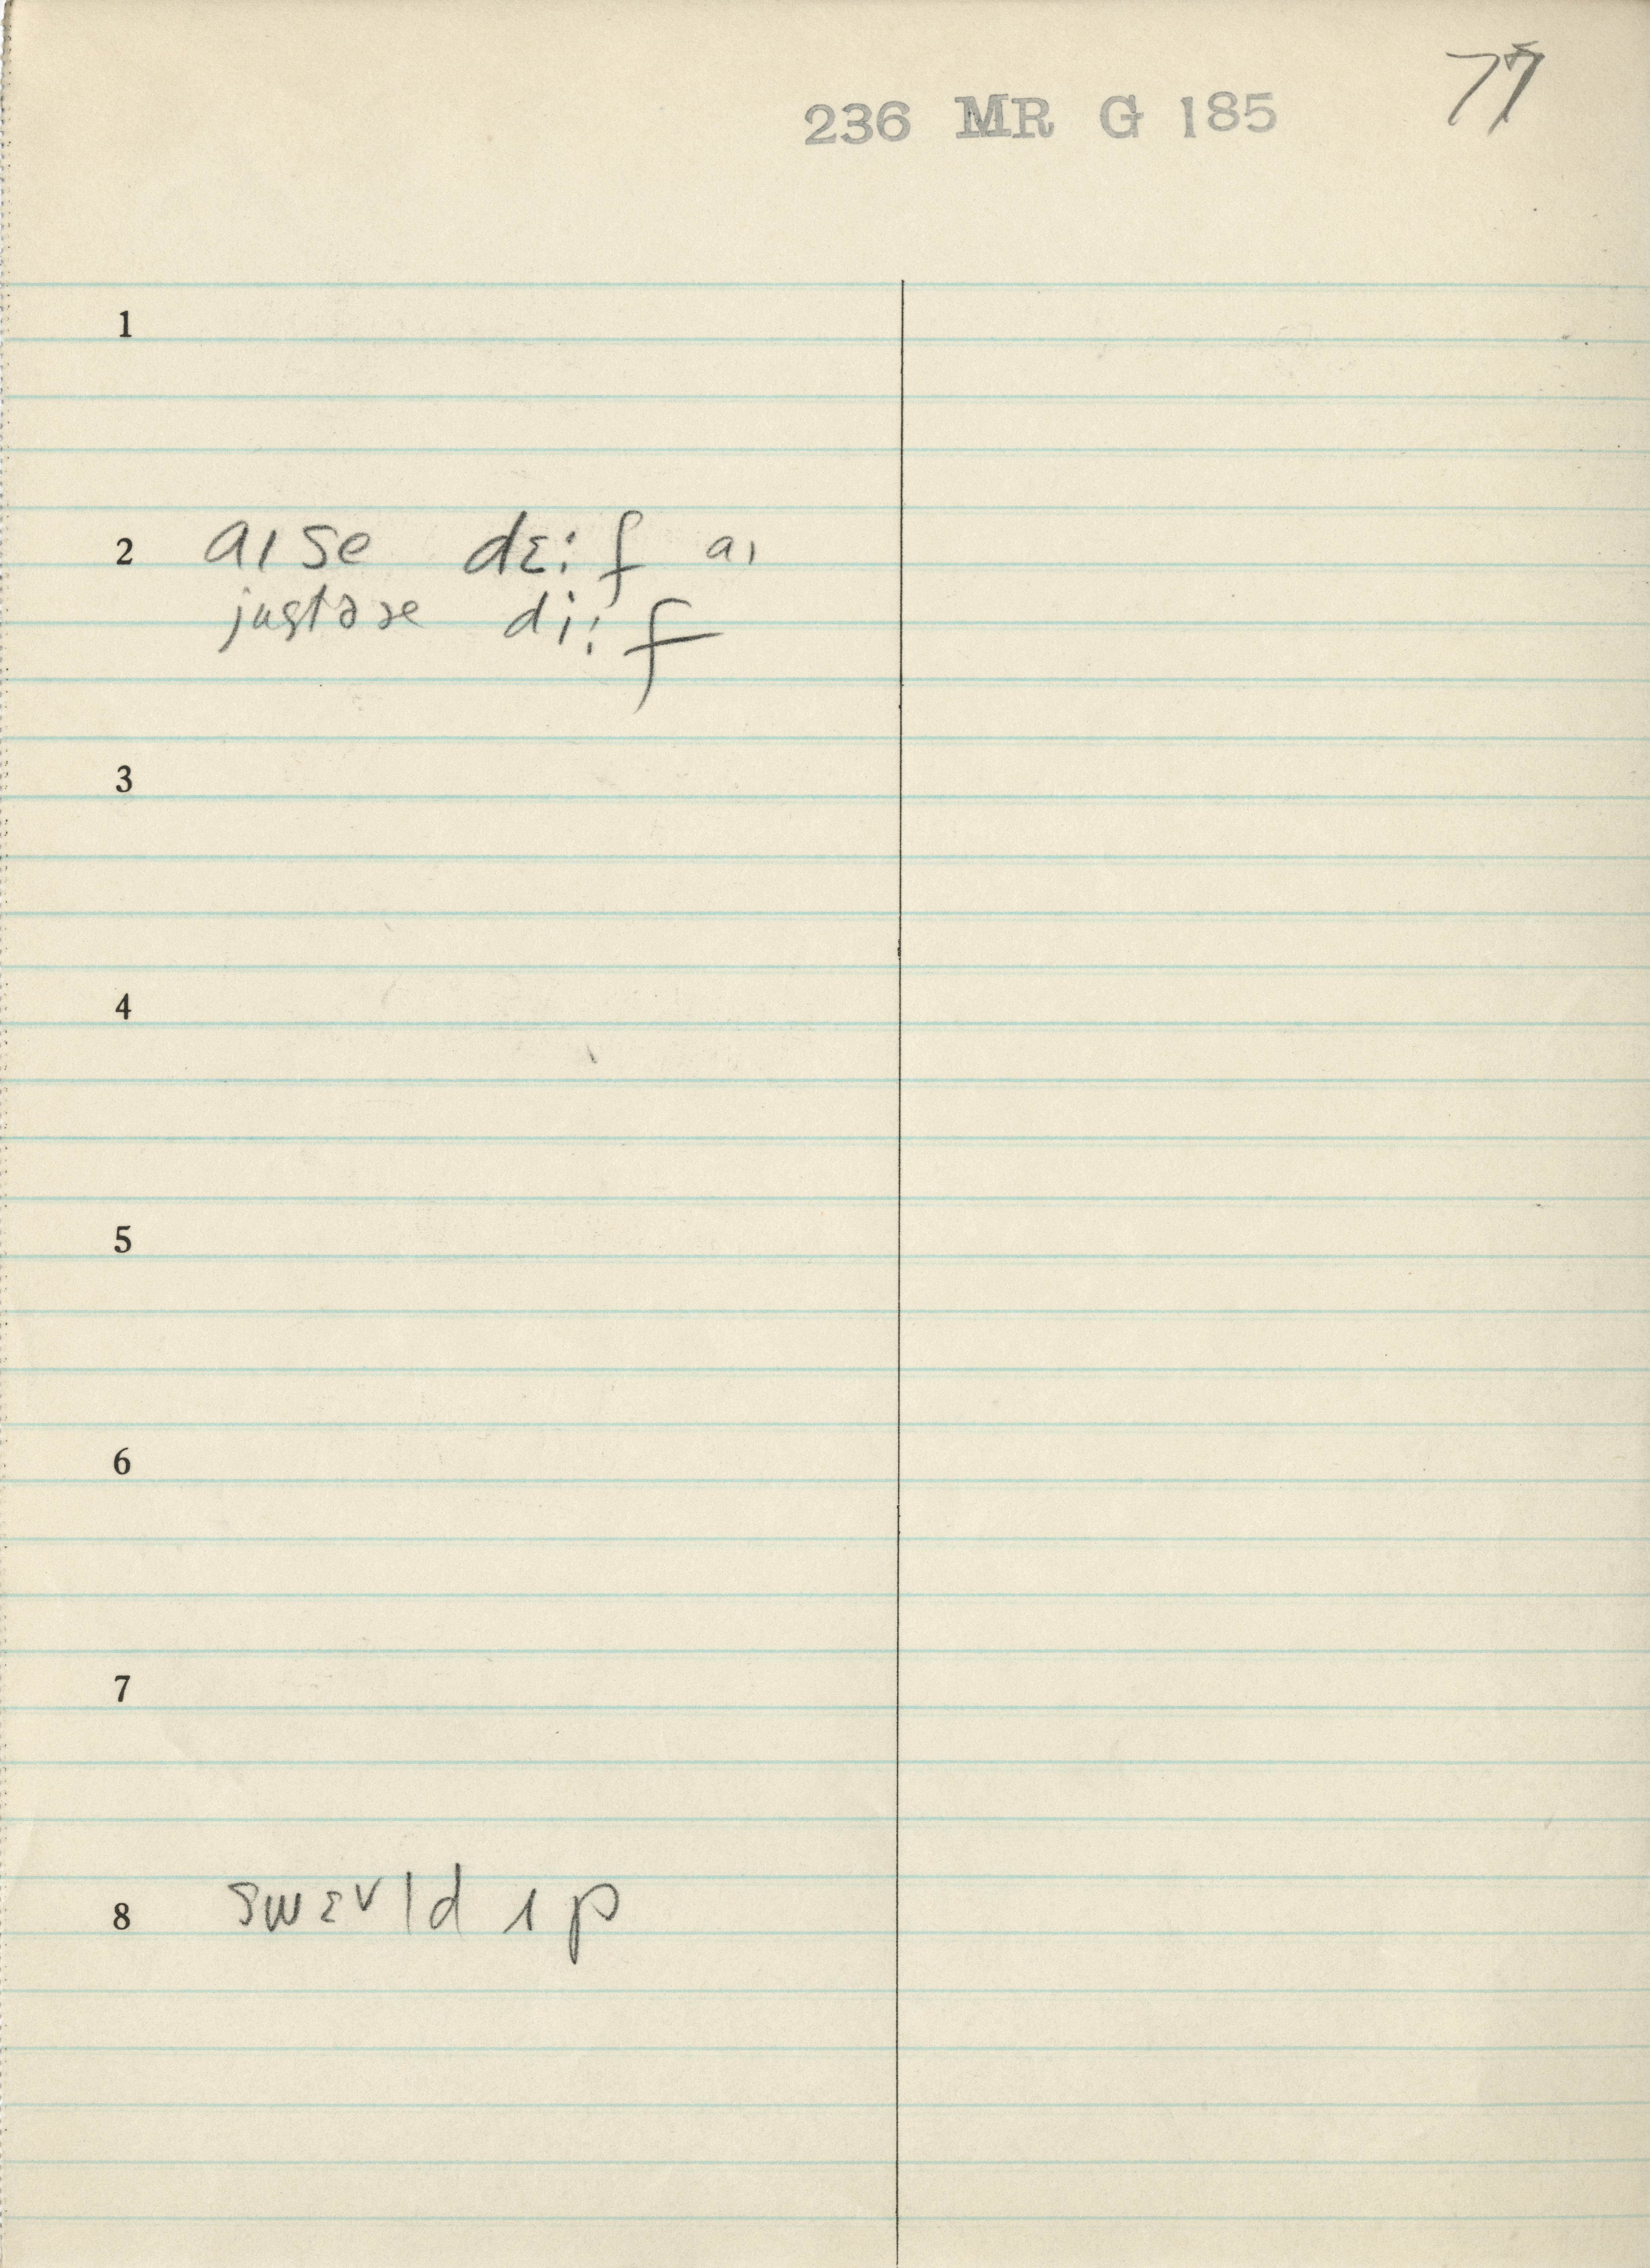 77
236 MR G 185
1
2 aɪ se dɛ:f aɪ
justə se di:f
3
4
5
6
7
8 swɛvld ɪp